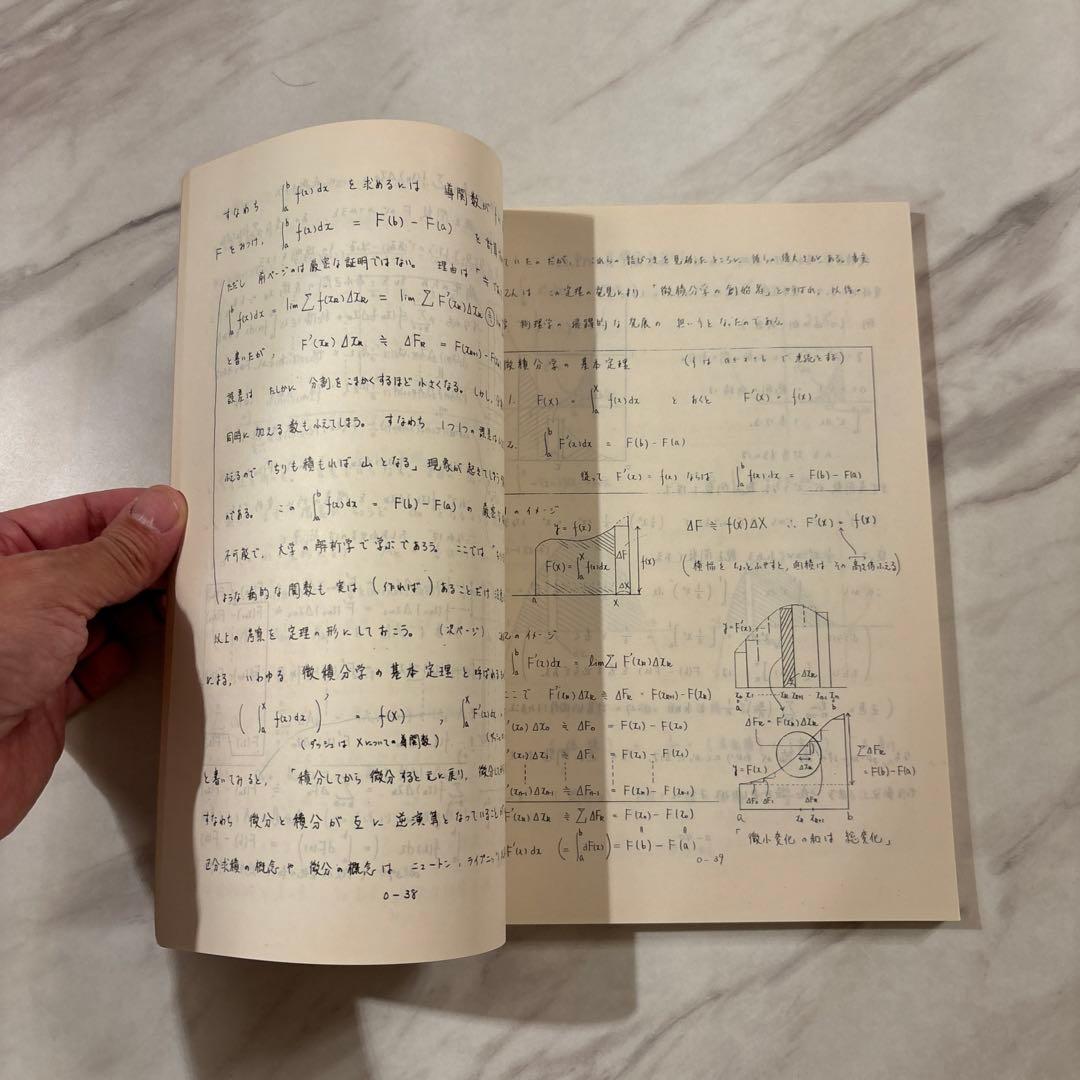 すなわち ∫_a^b f(x)dx を求めるには 導関数が
F をみつけ, ∫_a^b f(x)dx = F(b) − F(a) を計算
ただし 前ページのは厳密な証明ではない. 理由は
∫_a^b f(x)dx = lim Σ f(xk)Δxk = lim Σ F'(xk)Δxk
と書いたが, F'(xk)Δxk ≒ ΔFk = F(xk+1) − F(xk
誤差は たしかに 分割をこまかくするほど 小さくなる. しかし,
同時に 加える数もふえてしまう. すなわち 1つ1つの誤差は
ふえるので「ちりも積もれば 山となる」現象が 起きてしまう
のである. この ∫_a^b f(x)dx = F(b) − F(a) の 厳密
不可能で, 大学の解析学で学ぶであろう. ここでは
ような病的な関数も 実は (作れば) あることだけ
以上の考察を 定理の形にしておこう. (次ページ)
による, いわゆる 微積分学の基本定理 と呼ばれる
(∫_a^x f(x)dx)' = f(x) , ∫_a^x F'(x)dx
(ダッシュは xについての導関数)
と書いてみると, 「積分してから 微分すると 元に戻り, 微分し
すなわち 微分と積分が 互いに 逆演算となっていること
区分求積の概念や 微分の概念は ニュートン, ライプニッツ
0−38
ていたのだが, これらの結びつきを見破ったところに, 彼らの偉大さがある. 事実
は この定理の発見により 「微積分学の創始者」とよばれ, 以後の
学 物理学の 飛躍的な発展の 担い手となったのである
微積分学の基本定理 (fは a≦x≦b で連続とする)
1. F(x) = ∫_a^x f(x)dx とおくと F'(x) = f(x)
2. ∫_a^b F'(x)dx = F(b) − F(a)
従って F'(x) = f(x) ならば ∫_a^b f(x)dx = F(b) − F(a)
1 のイメージ
y = f(x)
F(x) = ∫_a^x f(x)dx
ΔF
f(x)
Δx
a x
ΔF ≒ f(x)Δx ∴ F'(x) = f(x)
(横幅を ちょっとふやすと, 面積は その 高さ倍ふえる)
2のイメージ
∫_a^b F'(x)dx = lim Σ F'(xk)Δxk
ここで F'(xk)Δxk ≒ ΔFk = F(xk+1) − F(xk)
'(x0)Δx0 ≒ ΔF0 = F(x1) − F(x0)
'(x1)Δx1 ≒ ΔF1 = F(x2) − F(x1)
'(xn-1)Δxn-1 ≒ ΔFn-1 = F(xn) − F(xn-1)
F'(xk)Δxk ≒ Σ ΔFk = F(xn) − F(x0)
F'(x)dx (= ∫_a^b dF(x)) = F(b) − F(a)
Δxk
x0 x1 xk xk+1 xn-1 xn
a b
ΔFk ≒ F'(xk)Δxk
y = F(x)
Δxk
ΣΔFk
= F(b) − F(a)
ΔF0 ΔF1 ΔFk
a xk xk+1 b
「微小変化の和は 総変化」
0−39